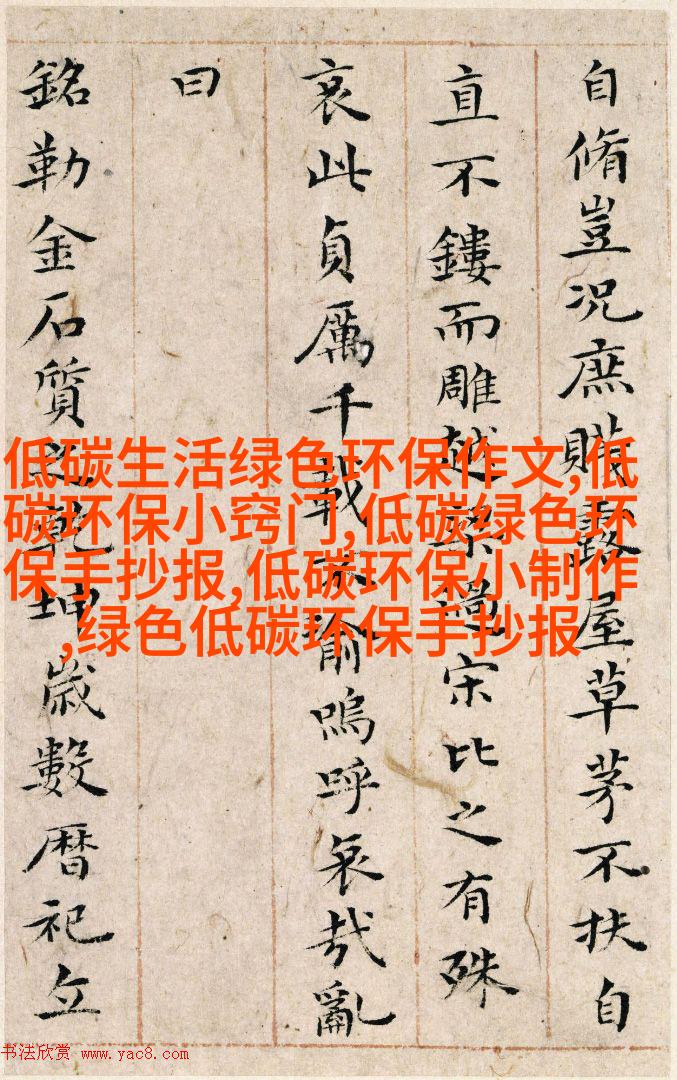 自脩豈况庶賤露屋草茅不扶自
直不鏤而雕越梁過宋比之有殊
哀此貞厲千載不渝嗚呼哀哉亂
曰
銘勒金石質之乾坤歲數暦祀立
低碳生活绿色环保作文,低
碳环保小窍门,低碳绿色环
保手抄报,低碳环保小制作
,绿色低碳环保手抄报
书法欣赏 www.yac8.com